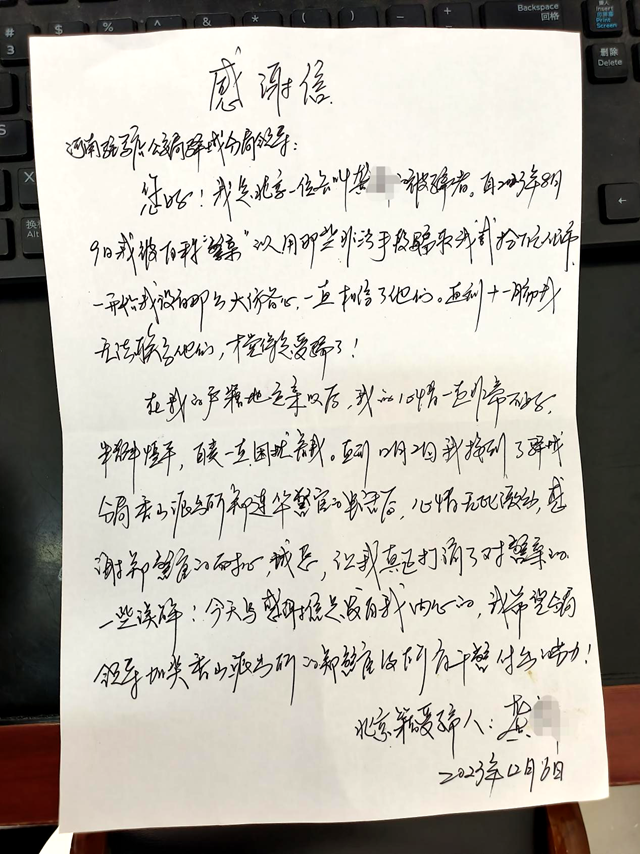 # 3
$
%
&
(
)
+
Backspace
回格
Insert
Print
Screen
Delete
S
Alt
感谢信
河南 公安局驿城分局领导:
您好!我是北京一位名叫龚 的被骗者。自2023年8月
9日我被自称"警察"以用那些非法手段骗取我 拾 万元人民币
一开始我没有那么大防备心,一直相信了他们。直到十一月初我
无法联系他们,才 受骗了!
在我的户籍地立案以后,我的心情一直非常不好,
,一直困扰着我。直到12月2日我接到了驿城
分局香山派出所郑连华警官的电话后,心情无比激动,感
谢郑警官的耐心,诚恳,让我真正打消了对警察的
一些误解!今天写感谢信是发自我内心的,我希望分局
领导 香山派出所的郑警官 所有干警付出的努力!
北京籍受骗人:龚
2023年12月 日